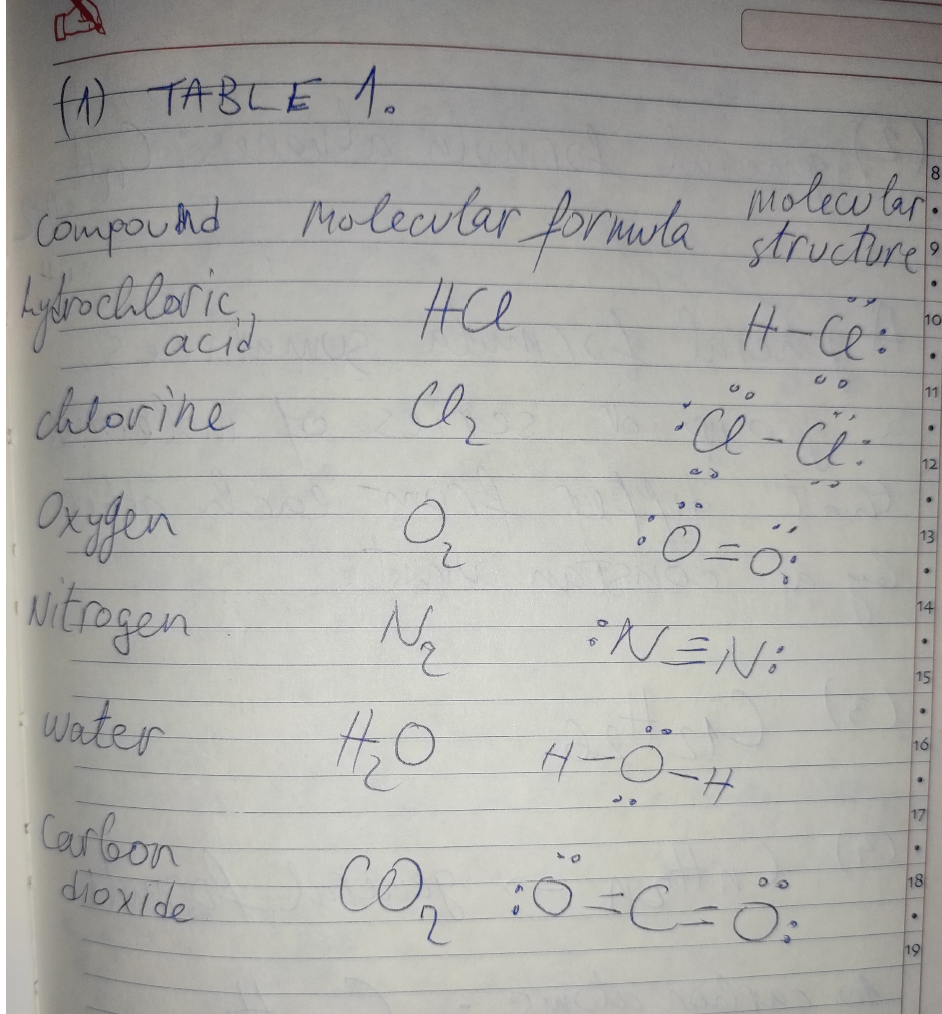 (1) TABLE 1.
compound Molecular formula molecular structure
hydrochloric acid HCl H-Cl:
chlorine Cl2 :Cl-Cl:
Oxygen O2 :O=O:
Nitrogen N2 :N≡N:
water H2O H-O-H
Carbon dioxide CO2 :O=C=O:
8
9
10
11
12
13
14
15
16
17
18
19